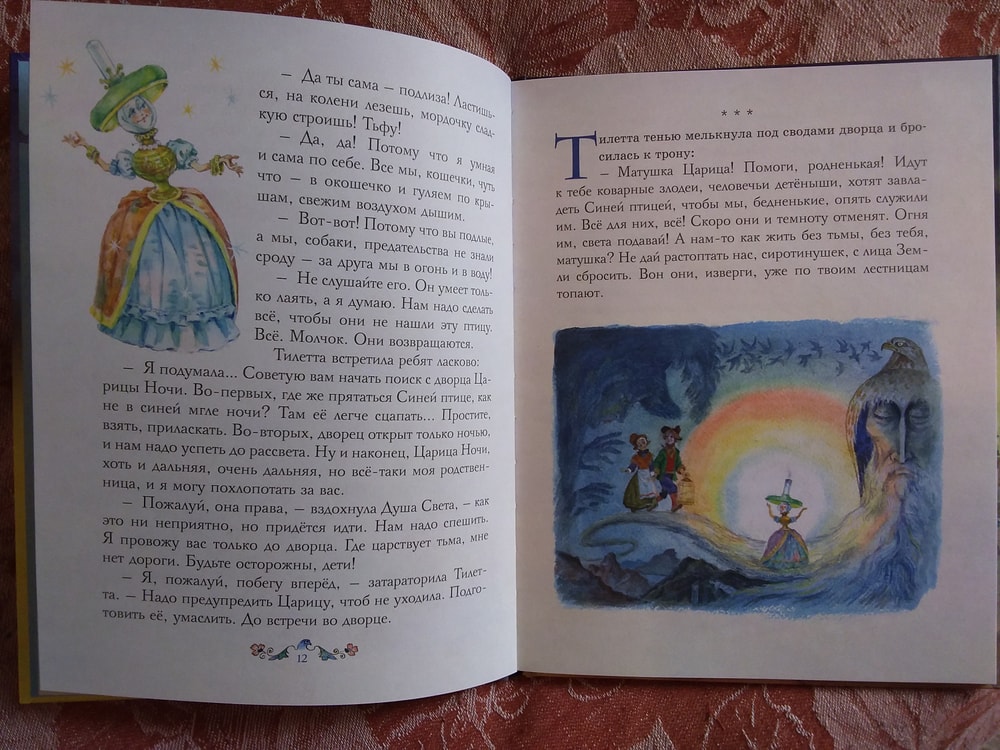 – Да ты сама – подлиза! Ластишь-
ся, на колени лезешь, мордочку слад-
кую строишь! Тьфу!
– Да, да! Потому что я умная
и сама по себе. Все мы, кошечки, чуть
что – в окошечко и гуляем по кры-
шам, свежим воздухом дышим.
– Вот-вот! Потому что вы подлые,
а мы, собаки, предательства не знали
сроду – за друга мы в огонь и в воду!
– Не слушайте его. Он умеет толь-
ко лаять, а я думаю. Нам надо сделать
всё, чтобы они не нашли эту птицу.
Всё. Молчок. Они возвращаются.
Тилетта встретила ребят ласково:
– Я подумала... Советую вам начать поиск с дворца Ца-
рицы Ночи. Во-первых, где же прятаться Синей птице, как
не в синей мгле ночи? Там её легче сцапать... Простите,
взять, приласкать. Во-вторых, дворец открыт только ночью,
и нам надо успеть до рассвета. Ну и наконец, Царица Ночи,
хоть и дальняя, очень дальняя, но всё-таки моя родствен-
ница, и я могу похлопотать за вас.
– Пожалуй, она права, – вздохнула Душа Света, – как
это ни неприятно, но придётся идти. Нам надо спешить.
Я провожу вас только до дворца. Где царствует тьма, мне
нет дороги. Будьте осторожны, дети!
– Я, пожалуй, побегу вперёд, – затараторила Тилет-
та. – Надо предупредить Царицу, чтоб не уходила. Подго-
товить её, умаслить. До встречи во дворце.
12
* * *
Тилетта тенью мелькнула под сводами дворца и бро-
силась к трону:
– Матушка Царица! Помоги, родненькая! Идут
к тебе коварные злодеи, человечьи детёныши, хотят завла-
деть Синей птицей, чтобы мы, бедненькие, опять служили
им. Всё для них, всё! Скоро они и темноту отменят. Огня
им, света подавай! А нам-то как жить без тьмы, без тебя,
матушка? Не дай растоптать нас, сиротинушек, с лица Зем-
ли сбросить. Вон они, изверги, уже по твоим лестницам
топают.